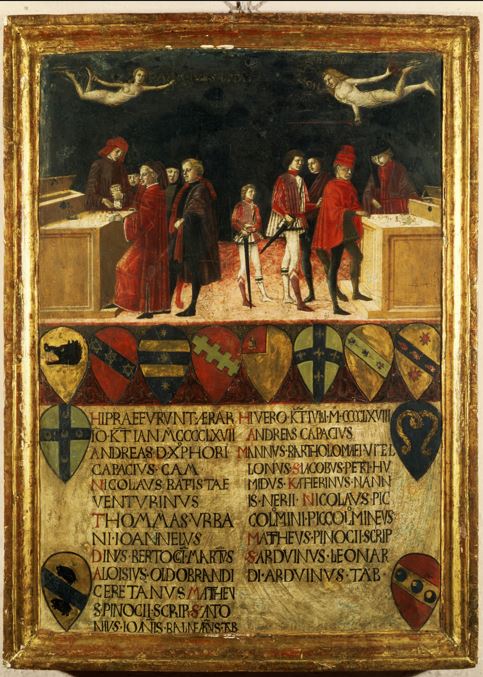 HI PRAEFVRVNT ÆRAR
IO·KT IAN·MCCCCLXVII
ANDREAS·DXPHORI
CAPACIVS·CAM
NICOLAVS·BATISTAE
VENTVRINVS
THOMMAS·VRBA
NI·IOANNELVS
DINVS·BERTOCI·MARTIS
ALOISIVS·OLDOBRANDI
CERETANVS MATHEV
S·PINOCII·SCRIP·SATO
NIVS·IOANIS·BALNEANVS·TAB
HI VERO·KT IVLII·M·CCCCLXVIII
ANDREAS CAPACIVS
MANNVS·BARTHOLOMEI VITEL
LONVS·SIACOBVS·PETRI·HV
MIDVS·KATHERINVS·NANN
IS·NERII·NICOLAVS·PIC
COLMINI·PICCOLMINEVS
MATHEVS·PINOCII·SCRIP
SARDVINVS·LEONAR
DI·ARDVINVS·TAB·